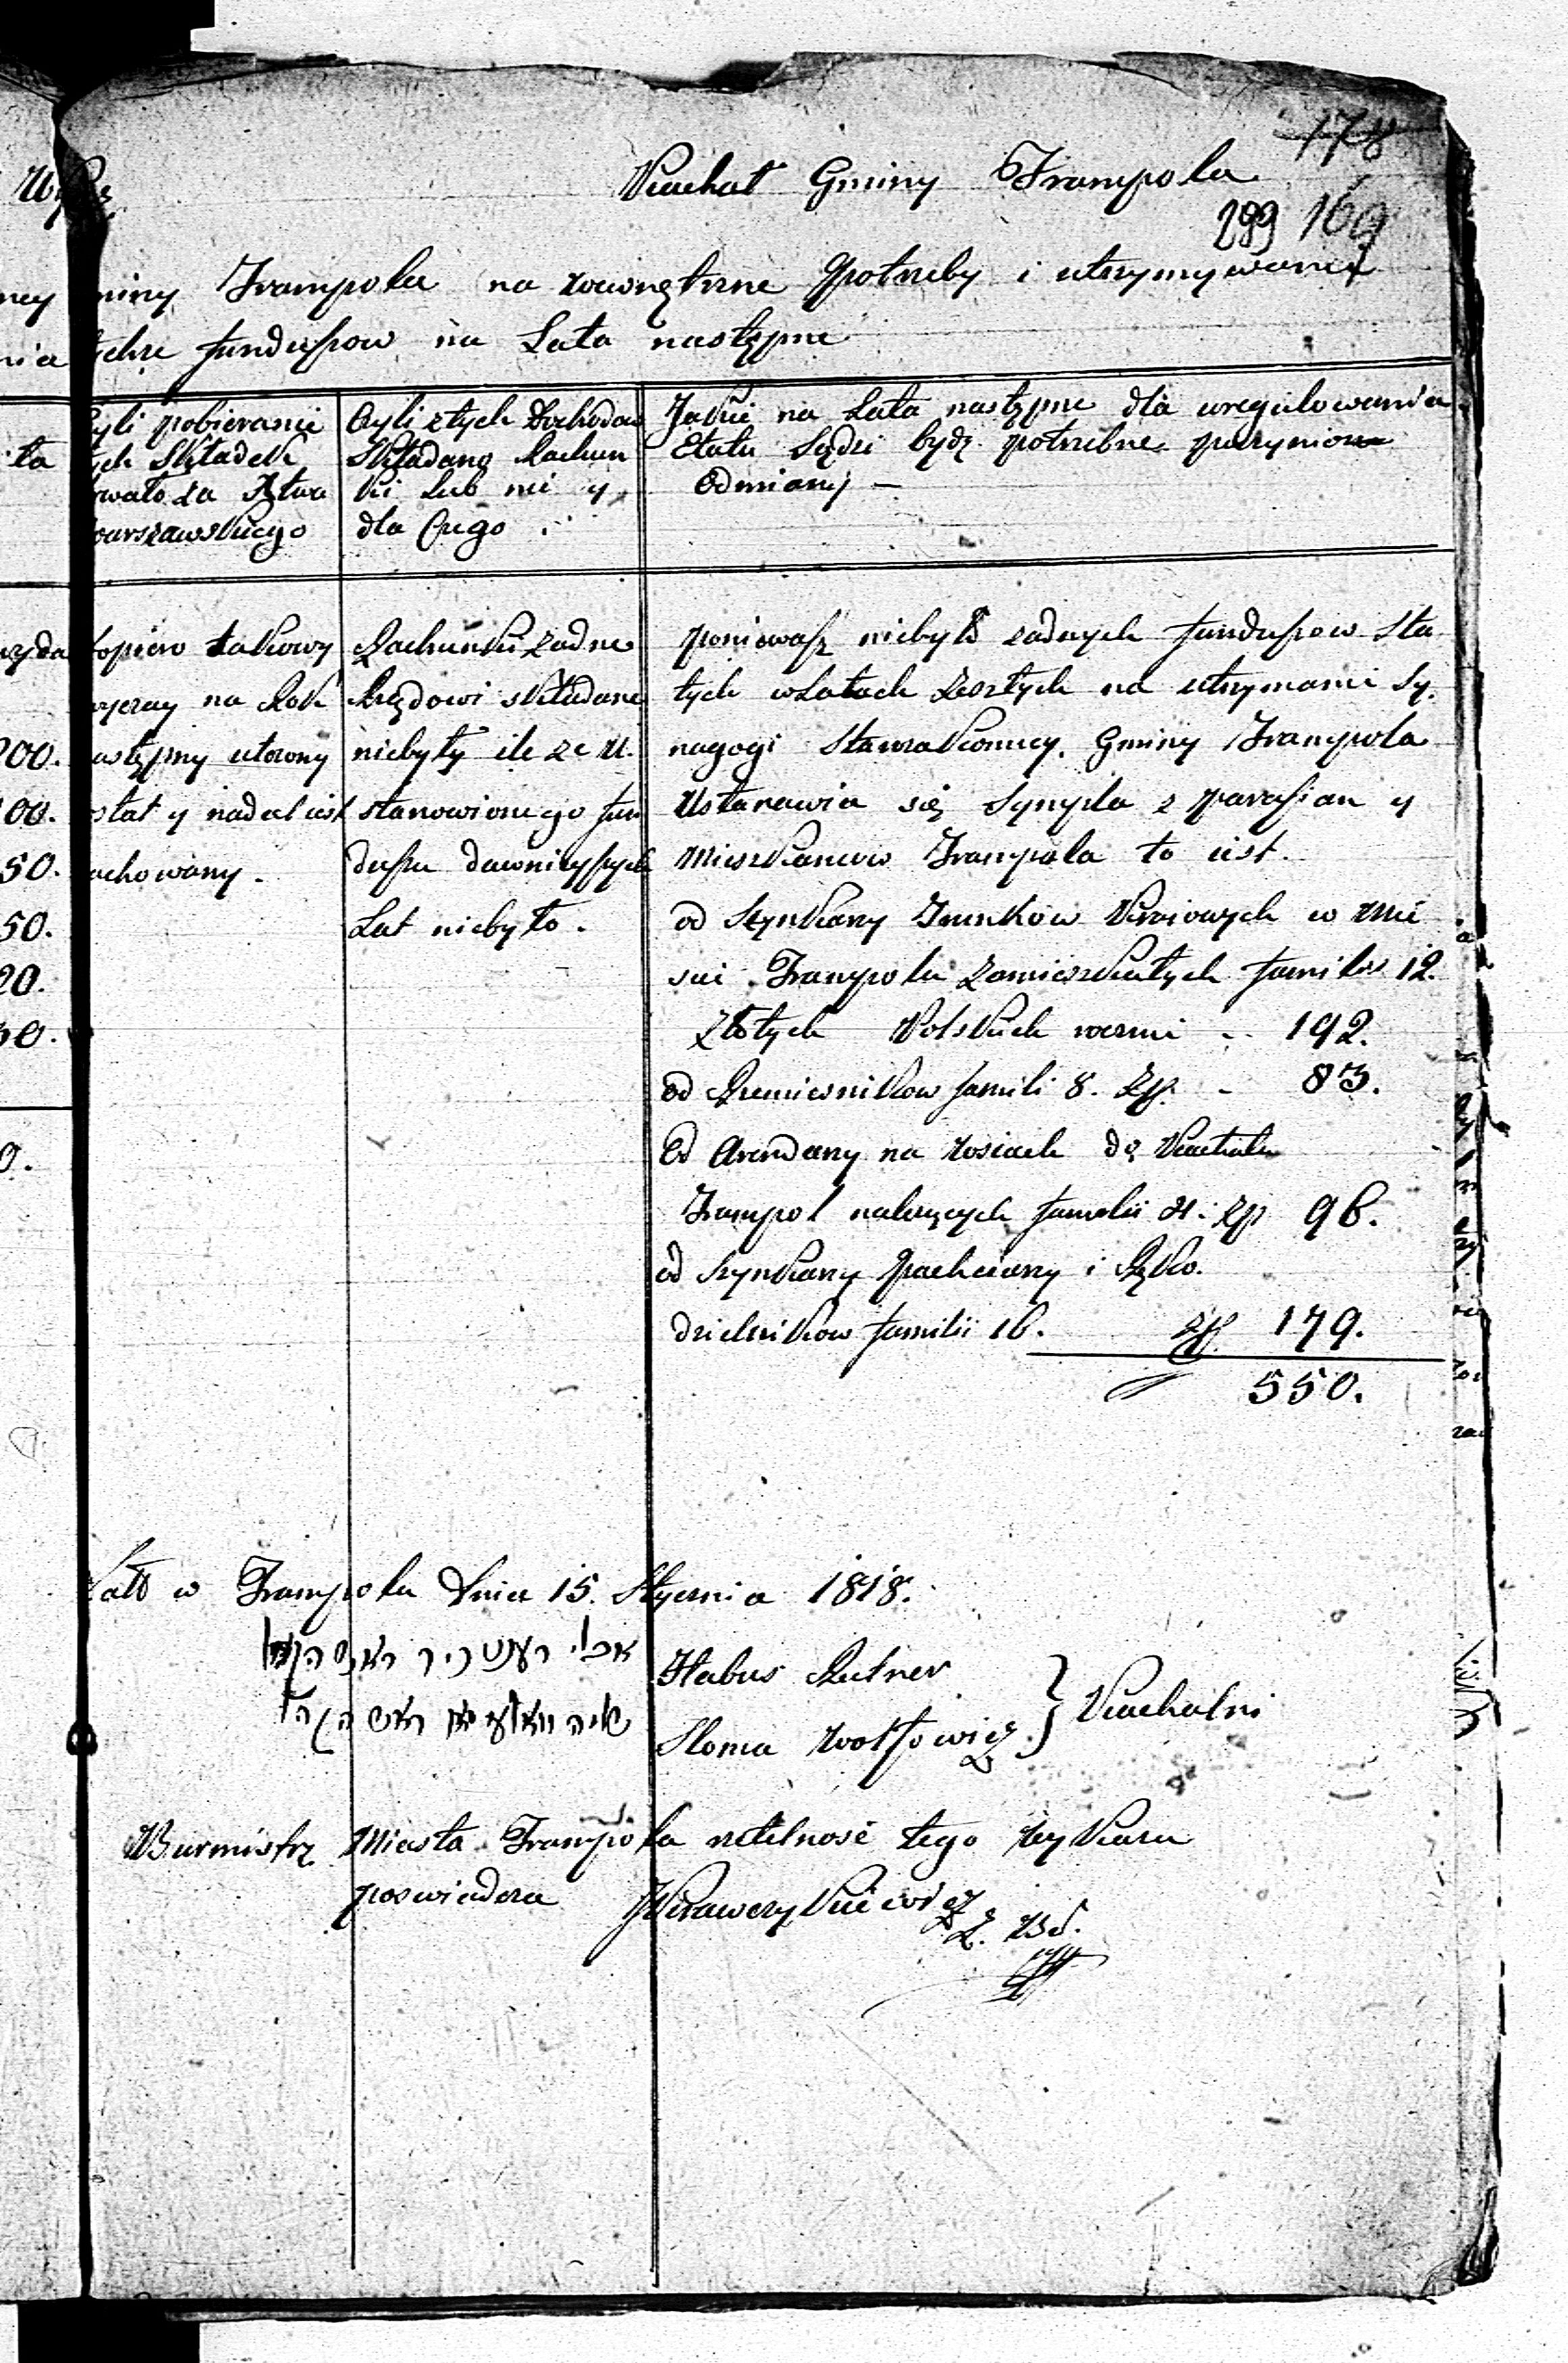 178
Kachał Gminy Frampola
299 169
miny Frampola na wewnętrzne potrzeby i utrzymywanie
tychże funduszow na Lata następne
czyli pobieranie
tych Składek
trwało za Xtwa
Warszawskiego
Czyli z tych Dochodow
Składano Rachun
ki lub nie y
dla Czego
Jakie na Lata następne dla uregulowania
Etatu Sądzi bydź potrzebne poczynione
Odmiany —
dopiero takowy
na Rok
następny utworzony
etat y nadal iest
zachowany.
200.
00.
50.
50.
20.
30.
0.
Rachunki żadne
Rządowi składane
niebyły ile ze U.
stanowionego fun
duszu dawnieyszych
Lat niebyło.
poniewasz niebyło żadnych funduszow Sta
łych w Latach zeszłych na utrzymanie Sy.
nagogi Starozakonney. Gminy Frampola
Ustanawia się Sympla z parafian y
Mieszkancow Frampola to iest.
od Szynkarzy Trunkow Kraiowych w Mie
scie Frampolu zamieszkałych familii 12.
Złotych Polskich 192.
od Rzemiesnikow famili 8. Zp. - 83.
Od Arendarzy na wsiach do Kachału
Frampol należących familii Zp 96.
od Szynkarzy Pachciarzy i Ręko.
dzielnikow familii 16. Zp. 179.
550.
Dało w Frampolu Dnia 15. Stycznia 1818.
Habus Rutner
Sloma Wolfowicz } Kachalni
Burmistrz Miasta Frampola rzetelnosć tego Wykazu
poswiadcza Krawczykiewicz